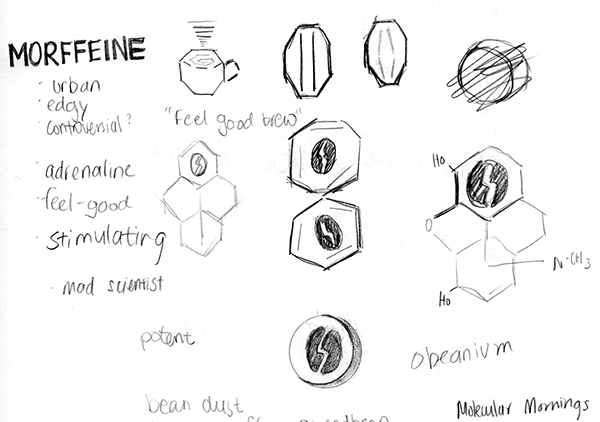 MORFFEINE
· urban
· edgy
· controversial?
"Feel good brew"
· adrenaline
· feel-good
· stimulating
· mad scientist
HO
O
N-CH3
HO
potent
obeanium
bean dust
Molecular Mornings